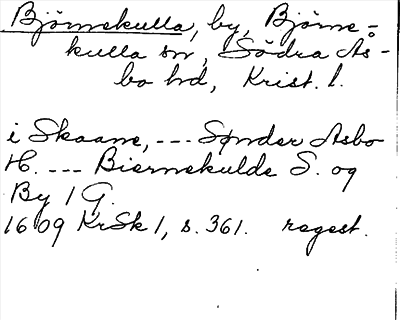 Björnekulla, by, Björne-
kulla sn, Södra Ås-
bo hd, Krist. l.
i Skaane, --- Sønder Asbo
H. --- Biernekulde S. og
By 1 G.
1609 KrSk 1, s. 361. regest.